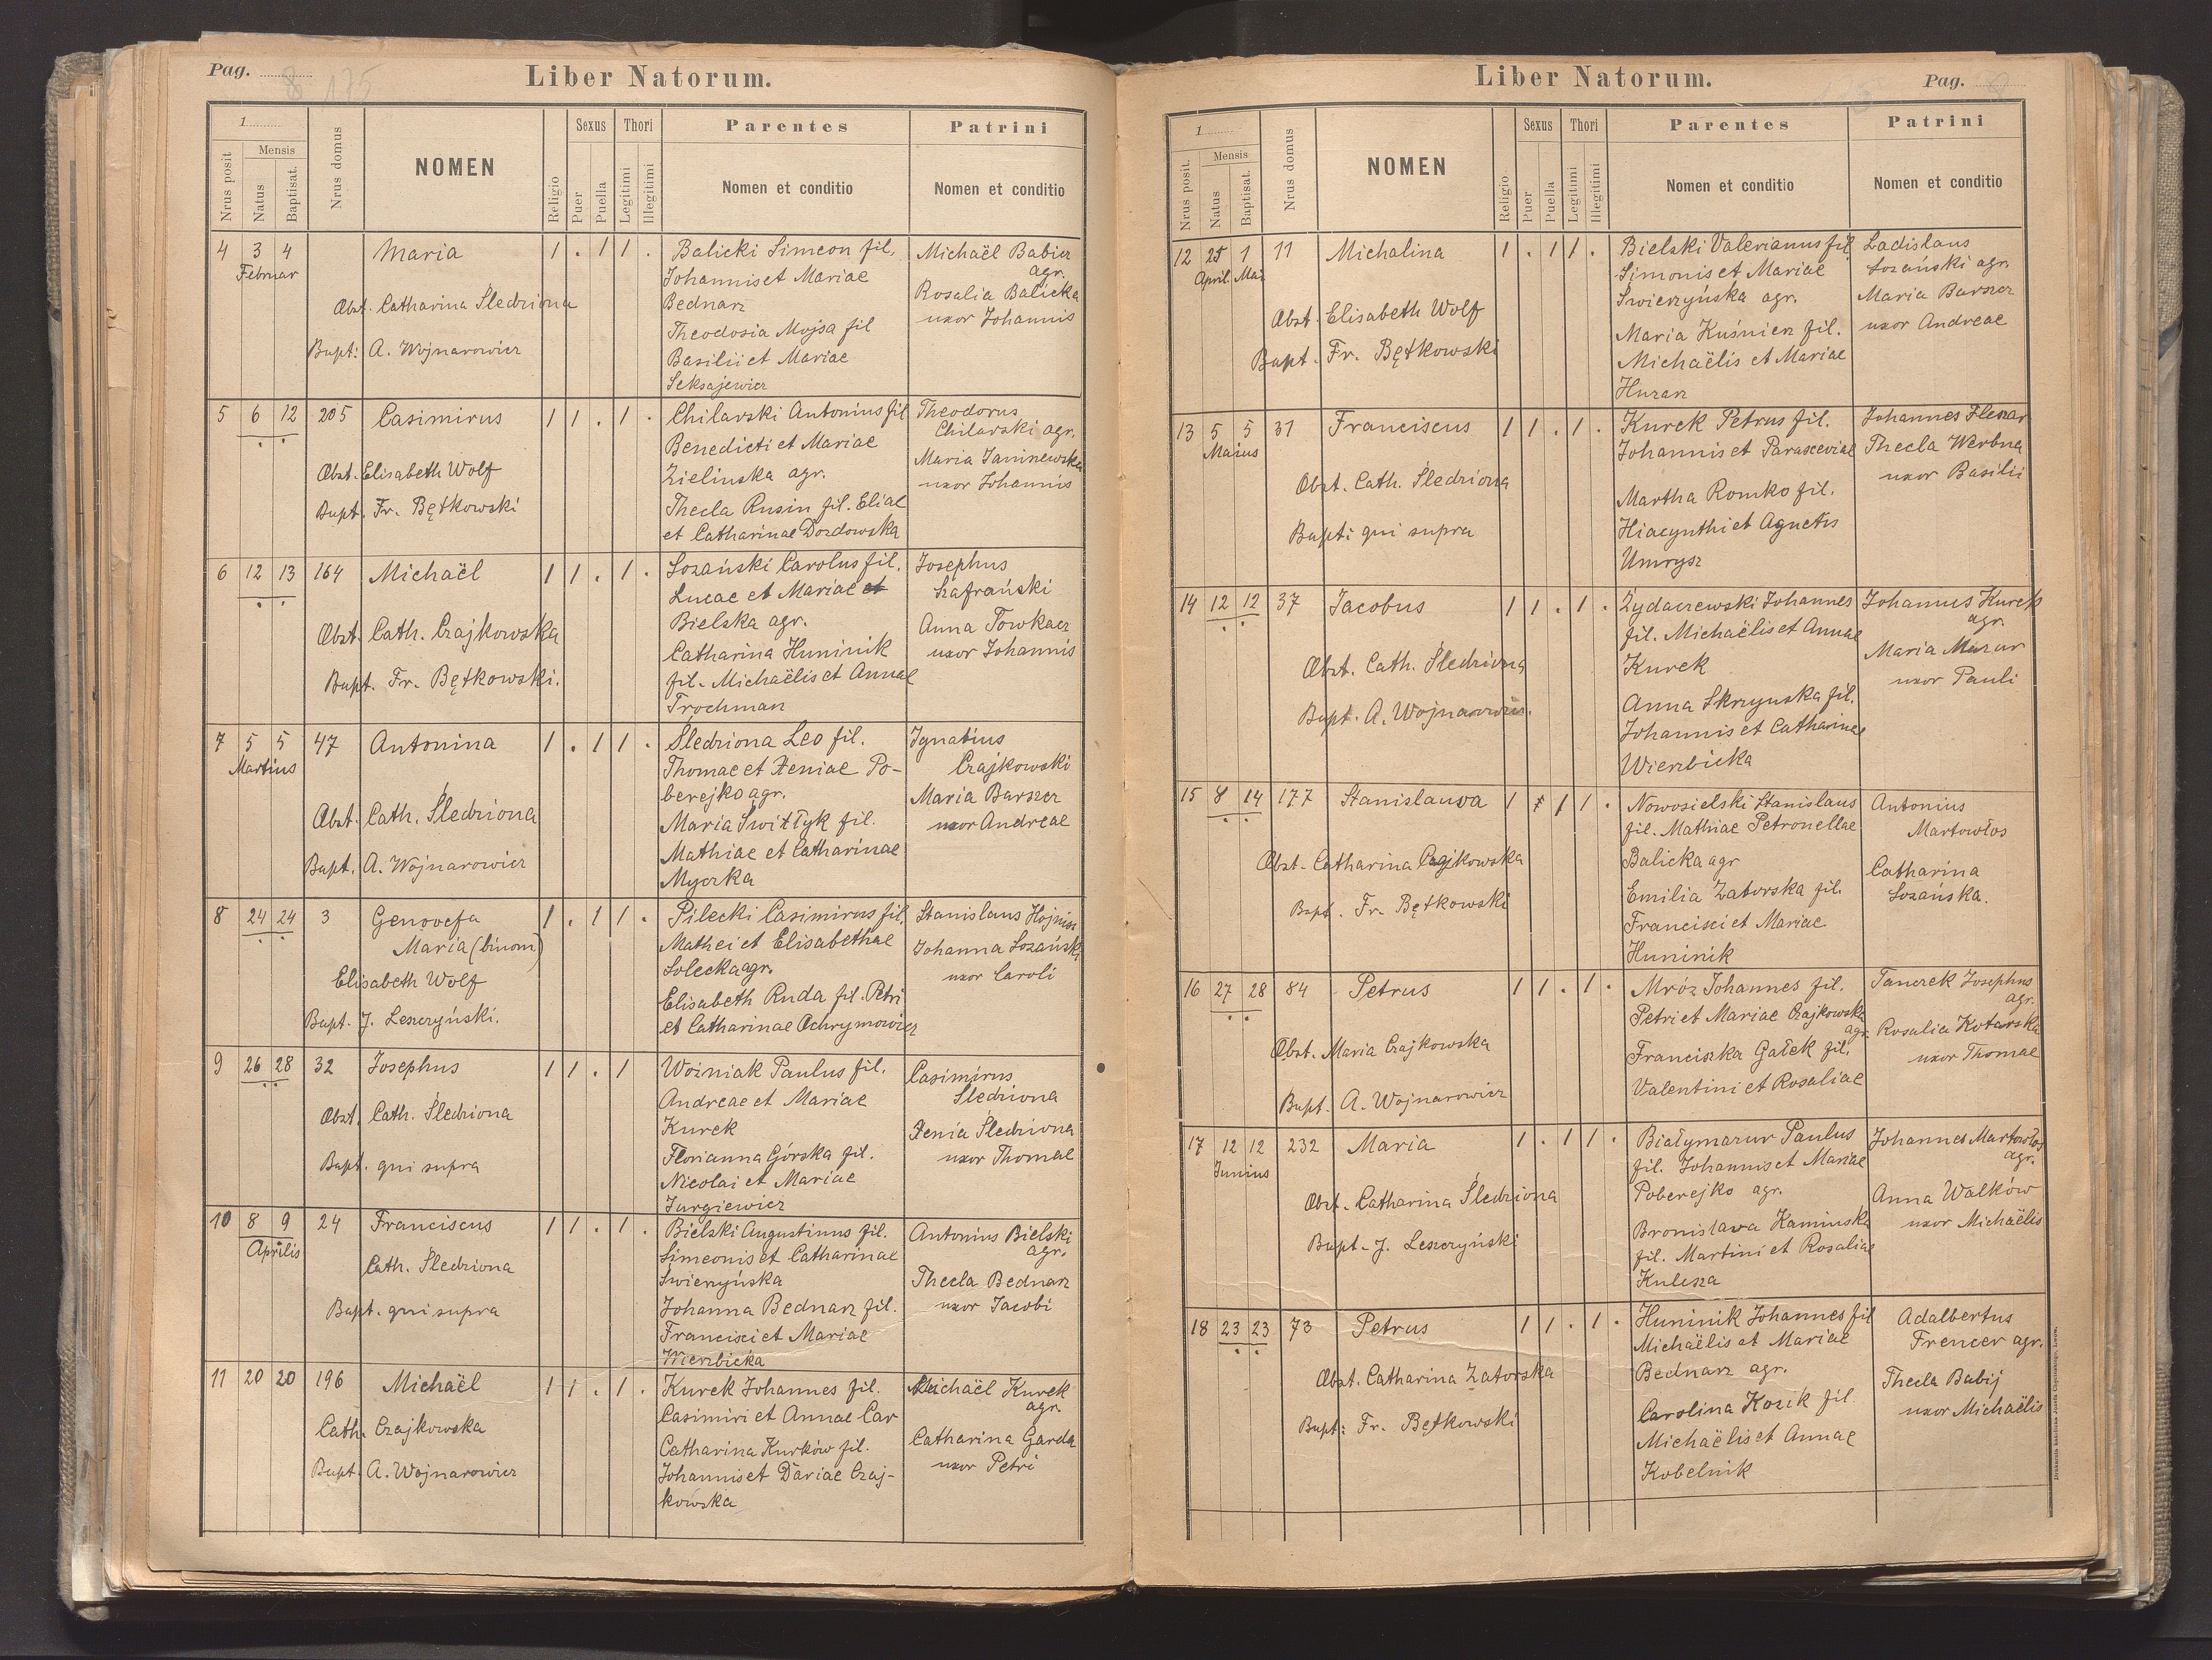 Pag. 8 175
Liber Natorum.
1
Nrus posit
Mensis
Natus
Baptisat.
Nrus domus
NOMEN
Religio
Sexus
Puer
Puella
Thori
Legitimi
Illegitimi
Parentes
Nomen et conditio
Patrini
Nomen et conditio
4 3 4 Maria 1 . 1 1 . Balicki Simeon fil. Michaël Babier
Februar Johannis et Mariae agr.
Obst. Catharina Śledziona Bednarz Rosalia Balicka
Theodosia Mojsa fil uxor Johannis
Bapt: A. Wojnarowicz Basilii et Mariae
Seksajewicz
5 6 12 205 Casimirus 1 1 . 1 . Chilarski Antonius fil Theodorus
Benedicti et Mariae Chilarski agr.
Obst. Elisabeth Wolf Zielinska agr. Maria Janiszewska
Bapt. Fr. Bętkowski Thecla Rusin fil. Eliae uxor Johannis
et Catharinae Dozdowska
6 12 13 164 Michaël 1 1 . 1 . Łozański Carolus fil. Josephus
Lucae et Mariae et Szafrański
Obst. Cath. Czajkowska Bielska agr. Anna Towkacz
Catharina Huninik uxor Johannis
Bapt. Fr. Bętkowski. fil. Michaëlis et Annae
Trochman
7 5 5 47 Antonina 1 . 1 1 . Śledziona Leo fil. Ignatius
Martius Thomae et Xeniae Po- Czajkowski
berejko agr. Maria Barszcz
Obst. Cath. Śledziona Maria Świtłyk fil. uxor Andreae
Mathiae et Catharinae
Bapt. A. Wojnarowicz Myczka
8 24 24 3 Genovefa 1 . 1 1 . Pilecki Casimirus fil. Stanislaus
Maria (binom) Mathei et Elisabethae Johanna Łozańska
Elisabeth Wolf Solecka agr. uxor Caroli
Elisabeth Ruda fil. Petri
Bapt. J. Leszczyński. et Catharinae Ochrymowicz
9 26 28 32 Josephus 1 1 . 1 Woźniak Paulus fil. Casimirus
Andreae et Mariae Śledziona
Obst. Cath. Śledziona Kurek Xenia Śledziona
Florianna Górska fil. uxor Thomae
Bapt. qui supra Nicolai et Mariae
Jurgiewicz
10 8 9 24 Franciscus 1 1 . 1 . Bielski Augustinus fil. Antonius Bielski
Aprilis Simeonis et Catharinae agr.
Cath. Śledziona Świerzyńska Thecla Bednarz
Bapt. qui supra Johanna Bednarz fil. uxor Jacobi
Francisci et Mariae
Wierzbicka
11 20 20 196 Michaël 1 1 . 1 . Kurek Johannes fil. Michaël Kurek
Casimiri et Annae Car agr.
Cath. Czajkowska Catharina Kurków fil. Catharina Garda
Bapt. A. Wojnarowicz Johannis et Dariae Czaj- uxor Petri
kowska
Liber Natorum.
Pag.
1
Nrus posit.
Mensis
Natus
Baptisat.
Nrus domus
NOMEN
Religio
Sexus
Puer
Puella
Thori
Legitimi
Illegitimi
Parentes
Nomen et conditio
Patrini
Nomen et conditio
12 25 1 11 Michalina 1 . 1 1 . Bielski Valerianus fil Ladislaus
April. Mai Simonis et Mariae Łozański agr.
Świerzyńska agr. Maria Barszcz
Obst. Elisabeth Wolf Maria Kuśnierz fil. uxor Andreae
Bapt. Fr. Bętkowski Michaëlis et Mariae
Huzar
13 5 5 31 Franciscus 1 1 . 1 . Kurek Petrus fil. Johannes Fleszar
Maius Johannis et Parasceviae Thecla Werbna
Obst. Cath. Śledziona Martha Romko fil. uxor Basilii
Bapt: qui supra Hiacynthi et Agnetis
Umrysz
14 12 12 37 Jacobus 1 1 . 1 . Żydaczewski Johannes Johannes Kurek
fil. Michaëlis et Annae agr.
Obst. Cath. Śledziona Kurek Maria Mazur
Anna Skrzynska fil. uxor Pauli
Bapt. A. Wojnarowicz. Johannis et Catharinae
Wierzbicka
15 8 14 177 Stanislava 1 1 1 . Nowosielski Stanislaus Antonius
fil. Mathiae Petronellae Martowłos
Obst. Catharina Czajkowska Balicka agr Catharina
Emilia Zatorska fil. Łozańska.
Bapt. Fr. Bętkowski Francisci et Mariae
Huninik
16 27 28 84 Petrus 1 1 . 1 . Mróz Johannes fil. Tanczek Josephus
Petri et Mariae Czajkowska agr. agr.
Obst. Maria Czajkowska Franciszka Gałek fil. Rosalia Kotarska
Bapt. A. Wojnarowicz Valentini et Rosaliae uxor Thomae
17 12 12 232 Maria 1 . 1 1 . Białymazur Paulus Johannes Martowłos
Junius fil. Johannis et Mariae agr.
Obst. Catharina Śledziona Poberejko agr. Anna Walków
Bronislava Kaminska uxor Michaëlis
Bapt. J. Leszczyński fil. Martini et Rosaliae
Kulesza
18 23 23 73 Petrus 1 1 . 1 . Huninik Johannes fil Adalbertus
Michaëlis et Mariae Frencer agr.
Obst. Catharina Zatorska Bednarz agr. Thecla Babij
Carolina Kozik fil uxor Michaëlis
Bapt: Fr. Bętkowski Michaëlis et Annae
Kobelnik